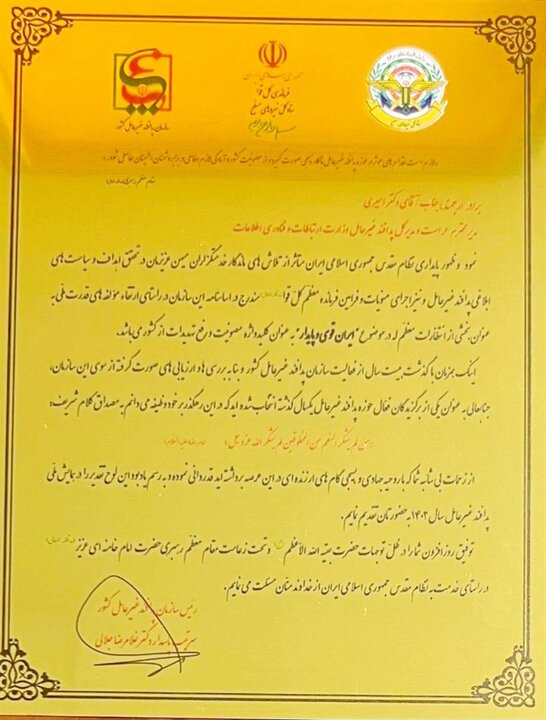 جمهوری اسلامی ایران
فرماندهی کل قوا
ستاد کل نیروهای مسلح
سازمان پدافند غیرعامل کشور
برادر ارجمند جناب آقای دکتر امیری
مدیر محترم حراست و مدیر کل پدافند غیرعامل وزارت ارتباطات و فناوری اطلاعات
نمود و ظهور پایداری نظام مقدس جمهوری اسلامی ایران متأثر از تلاش های ماندگار خدمتگزاران میهن عزیزمان در تحقق اهداف و سیاست های
ابلاغی پدافند غیرعامل و نیز اجرای منویات و فرامین فرمانده معظم کل قوا مندرج در اساسنامه این سازمان در راستای ارتقاء مؤلفه های قدرت ملی به
عنوان بخشی از انتظارات معظم له در موضوع "ایران قوی و پایدار" به عنوان کلید واژه مصونیت و رفع تهدیدات از کشور می باشد.
اینک همزمان با گذشت بیست سال از فعالیت سازمان پدافند غیرعامل کشور و بنا به بررسی ها و ارزیابی های صورت گرفته از سوی این سازمان،
جنابعالی به عنوان یکی از برگزیدگان فعال حوزه پدافند غیرعامل یکسال گذشته انتخاب شده اید که در این رهگذر بر خود وظیفه می دانم به مصداق کلام شریف،
من لم یشکر المنعم من المخلوقین لم یشکر الله عزوجل امام رضا علیه السلام
از زحمات بی شائبه شما که با روحیه جهادی و بسیجی گام های ارزنده ای در این عرصه برداشته اید قدردانی نموده و به رسم یادبود این لوح تقدیر را در همایش ملی
پدافند غیرعامل سال ۱۴۰۲ به حضورتان تقدیم نمایم.
توفیق روزافزون شما را در ظل توجهات حضرت بقیه الله الاعظم و تحت زعامت مقام معظم رهبری حضرت امام خامنه ای عزیز
در راستای خدمت به نظام مقدس جمهوری اسلامی ایران از خداوند منان مسئلت می نمایم.
رئیس سازمان پدافند غیرعامل کشور
سرتیپ پاسدار دکتر غلامرضا جلالی